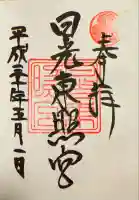 奉拝
日光東照宮
平成二十年五月一日